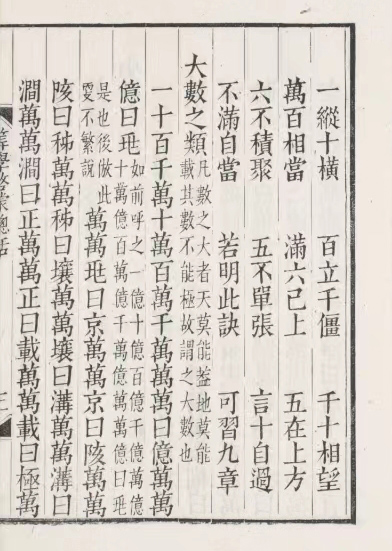 一縱十橫　百立千僵　千十相望
萬百相當　滿六已上　五在上方
六不積聚　五不單張　言十自過
不滿自當　若明此訣　可習九章
大數之類凡數之大者天莫能蓋地莫能
載其數不能極故謂之大數也
一十百千萬十萬百萬千萬萬萬曰億萬萬
億曰兆如前呼之一億十億百億千億萬億
十萬億百萬億千萬億萬萬億曰兆
是也後倣此
雯不繁說萬萬兆曰京萬萬京曰陔萬萬
陔曰秭萬萬秭曰壤萬萬壤曰溝萬萬溝曰
澗萬萬澗曰正萬萬正曰載萬萬載曰極萬